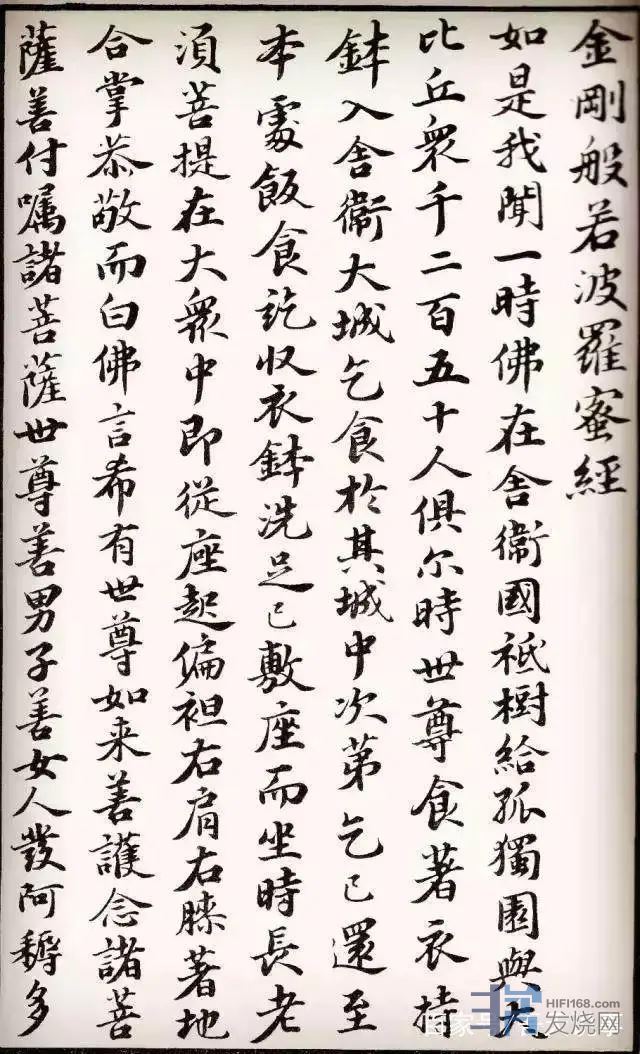 金剛般若波羅蜜經
如是我聞一時佛在舍衛國祇樹給孤獨園與大
比丘衆千二百五十人俱尔時世尊食著衣持
鉢入舍衛大城乞食於其城中次第乞已還至
本處飯食訖収衣鉢洗足已敷座而坐時長老
須菩提在大衆中即從座起偏袒右肩右膝著地
合掌恭敬而白佛言希有世尊如来善護念諸菩
薩善付嘱諸菩薩世尊善男子善女人發阿耨多
HIFI168.com
发烧网